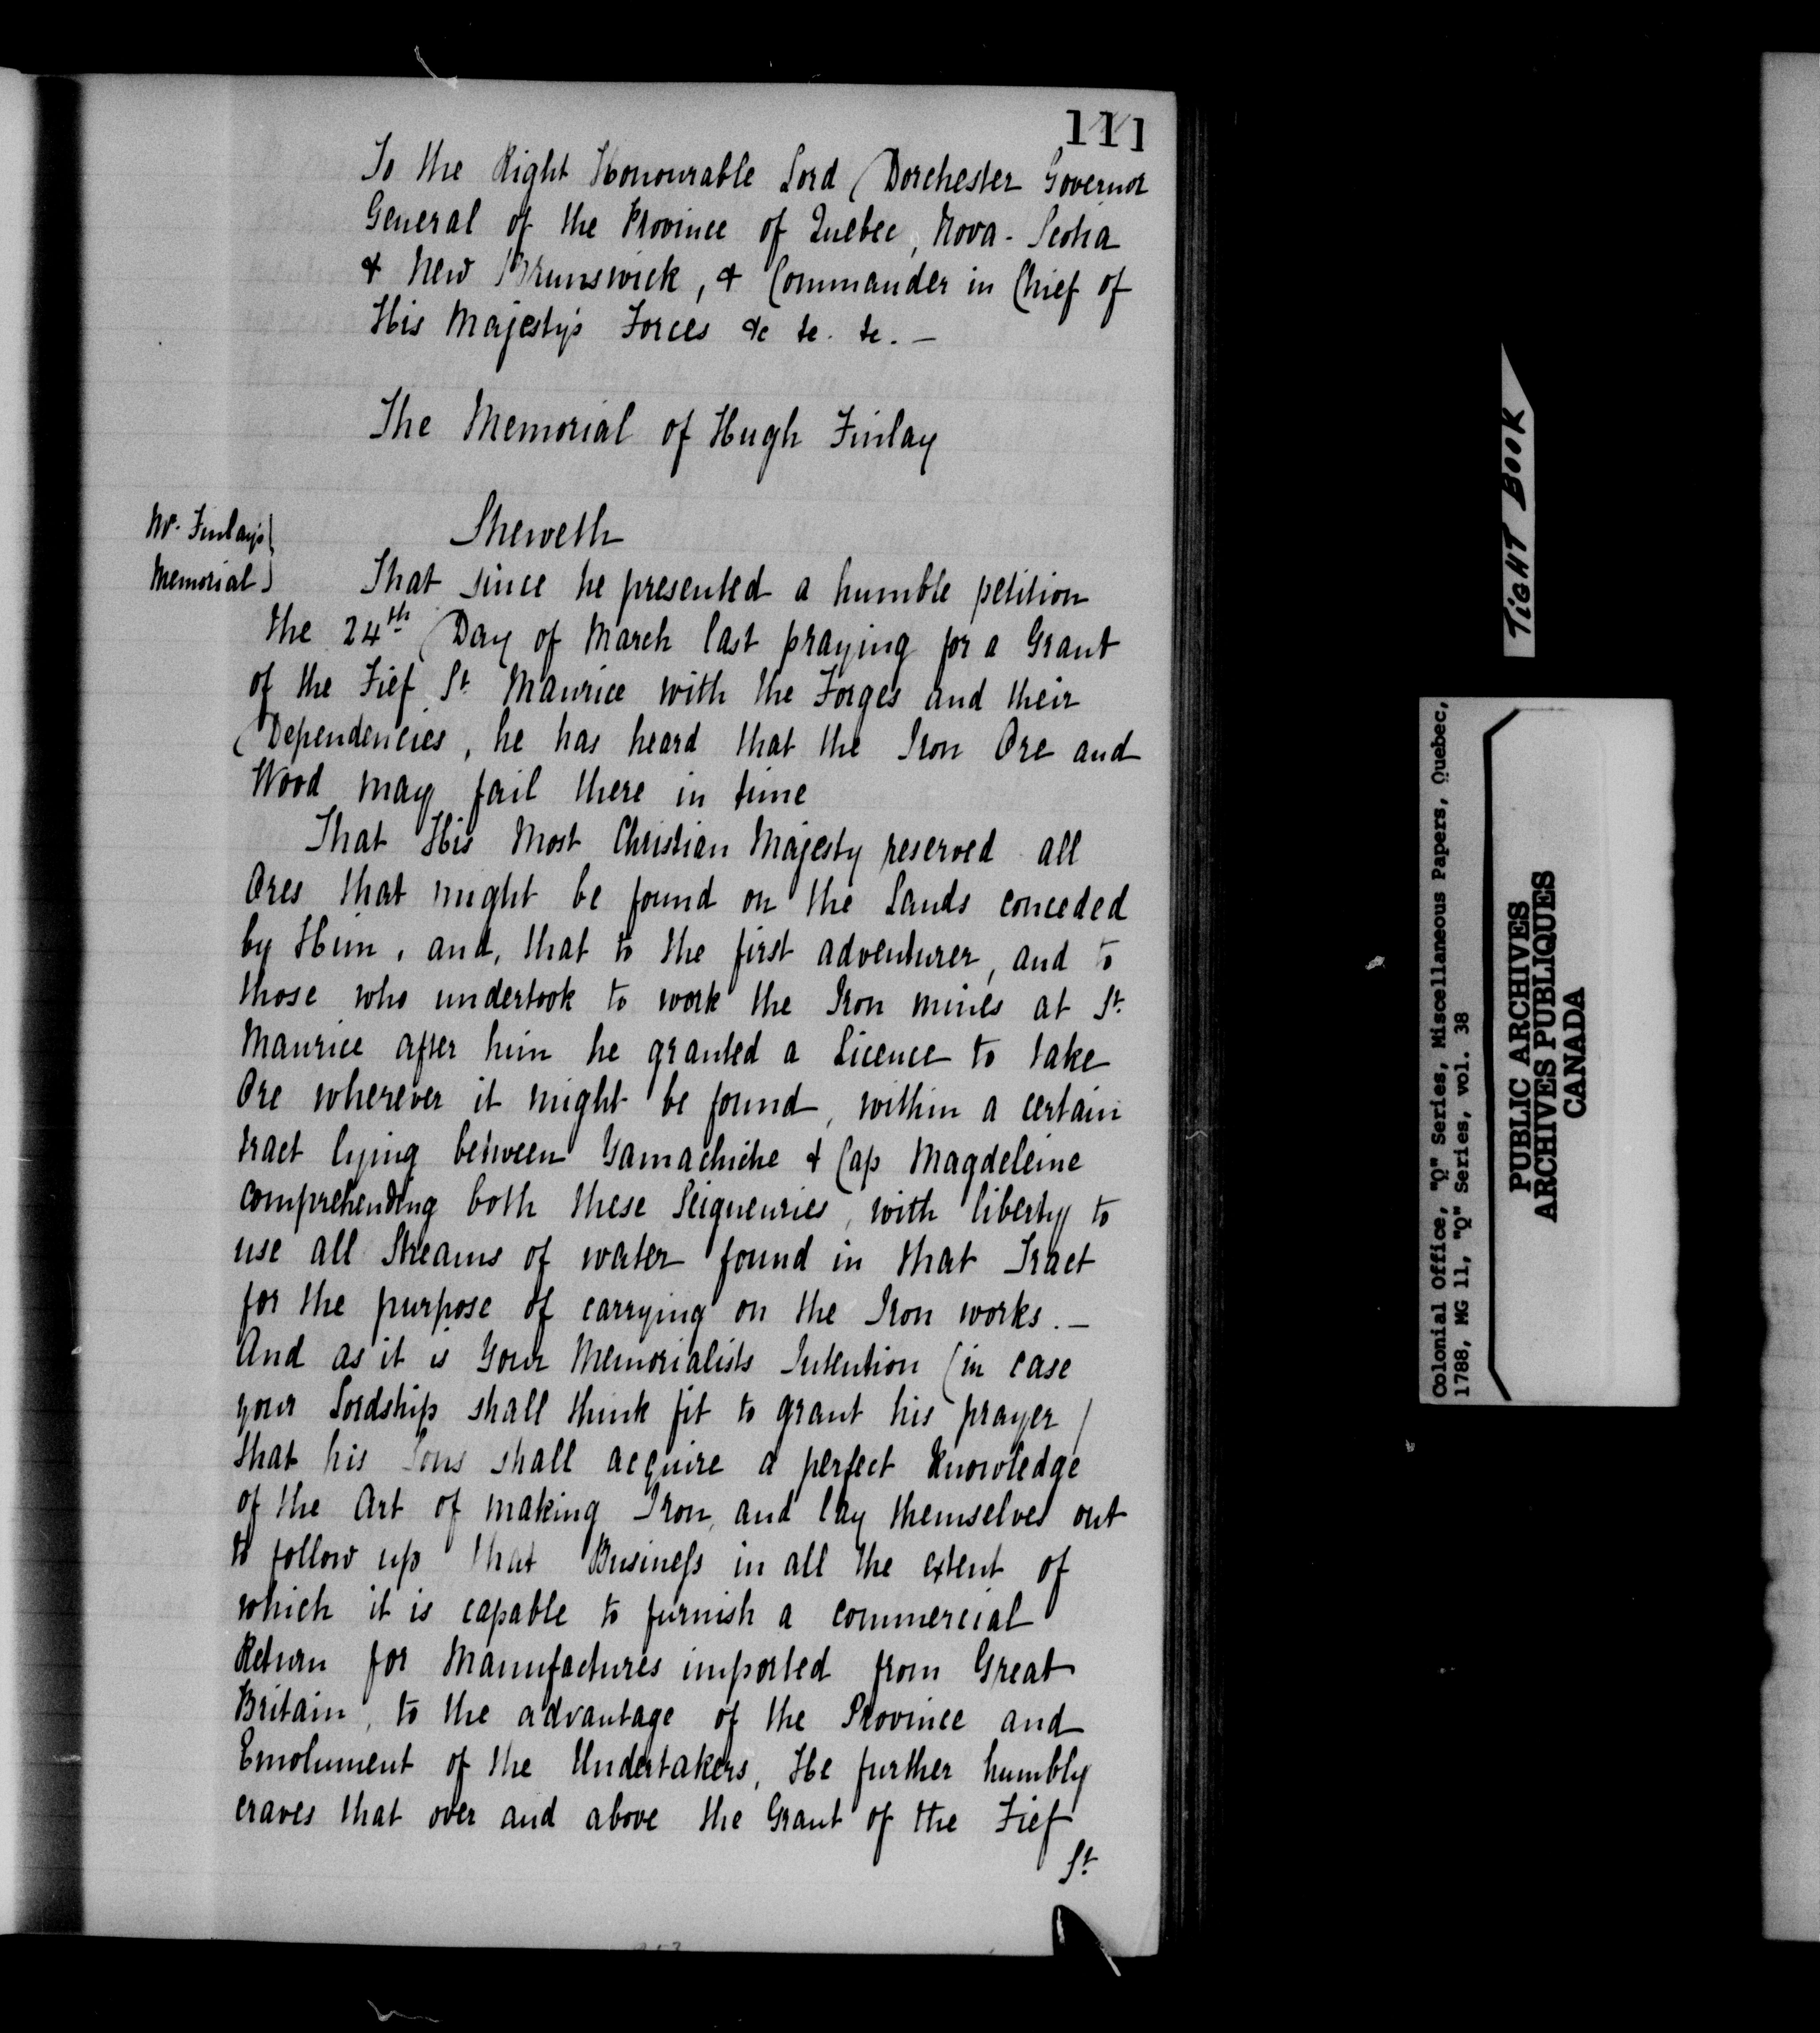 111
To the Right Honourable Lord Dorchester Governor
General of the Province of Quebec, Nova-Scotia
& New Brunswick, & Commander in Chief of
His Majesty's Forces &c &c. &c. —
The Memorial of Hugh Finlay
Mr. Finlay's
Memorial
Sheweth
That since he presented a humble petition
the 24th Day of March last praying for a Grant
of the Fief St Maurice with the Forges and their
Dependencies, he has heard that the Iron Ore and
Wood may fail there in time
That His Most Christian Majesty reserved all
Ores that might be found on the Lands conceded
by Him, and, that to the first adventurer, and to
those who undertook to work the Iron mines at St
Maurice after him he granted a Licence to take
Ore wherever it might be found, within a certain
tract lying between Yamachiche & Cap Magdeleine
comprehending both these Seigneuries, with liberty to
use all Streams of water found in that Tract
for the purpose of carrying on the Iron works. —
And as it is Your Memorialists Intention (in case
your Lordship shall think fit to grant his prayer)
that his Sons shall acquire a perfect Knowledge
of the Art of making Iron, and lay themselves out
to follow up that Business in all the extent of
which it is capable to furnish a commercial
Return for Manufactures imported from Great
Britain, to the advantage of the Province and
Emolument of the Undertakers, He further humbly
craves that over and above the Grant of the Fief
St
TIGHT BOOK
Colonial Office, "Q" Series, Miscellaneous Papers, Quebec,
1788, MG 11, "Q" Series, vol. 38
PUBLIC ARCHIVES
ARCHIVES PUBLIQUES
CANADA